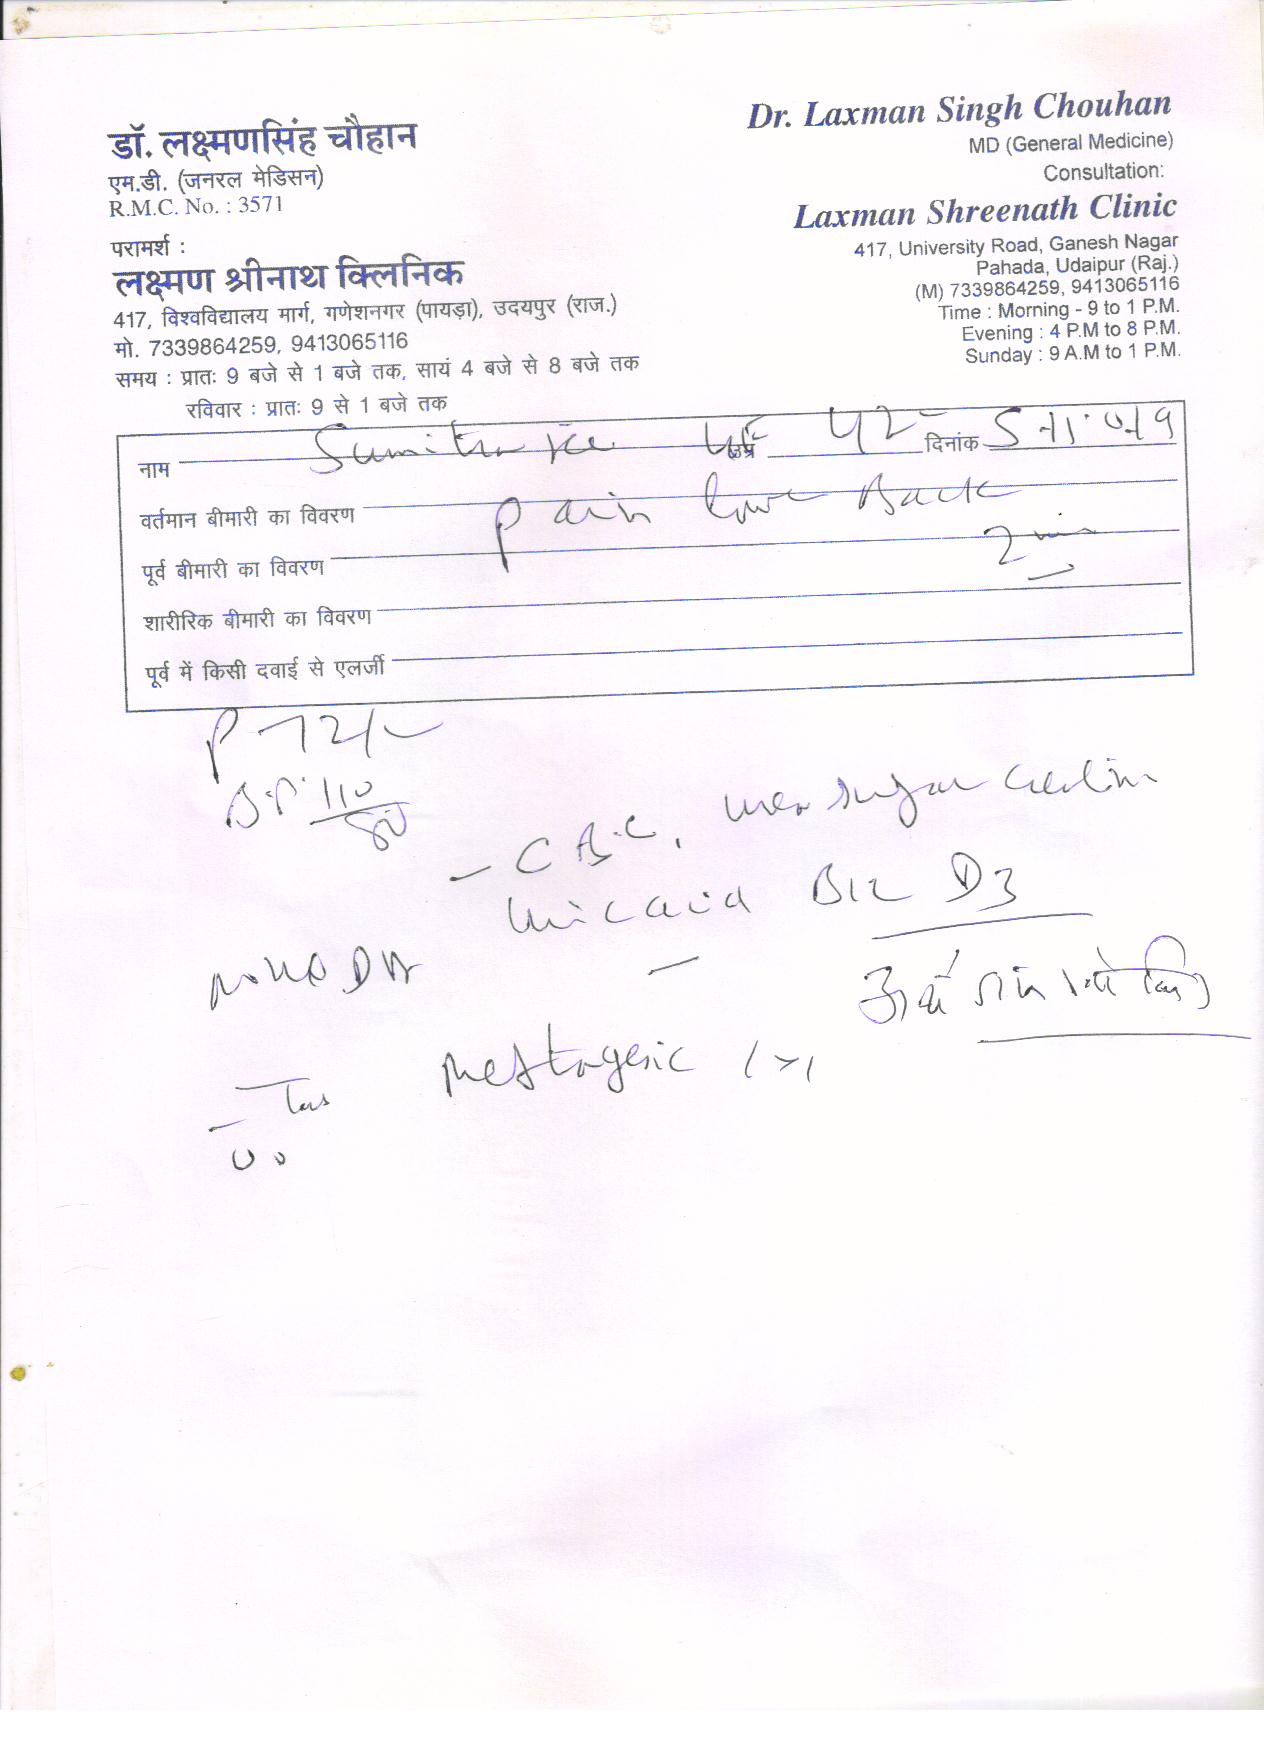 डॉ. लक्ष्मणसिंह चौहान
एम.डी. (जनरल मेडिसन)
R.M.C. No. : 3571
परामर्श :
लक्ष्मण श्रीनाथ क्लिनिक
417, विश्वविद्यालय मार्ग, गणेशनगर (पायड़ा), उदयपुर (राज.)
मो. 7339864259, 9413065116
समय : प्रातः 9 बजे से 1 बजे तक, सायं 4 बजे से 8 बजे तक
रविवार : प्रातः 9 से 1 बजे तक
Dr. Laxman Singh Chouhan
MD (General Medicine)
Consultation:
Laxman Shreenath Clinic
417, University Road, Ganesh Nagar
Pahada, Udaipur (Raj.)
(M) 7339864259, 9413065116
Time : Morning - 9 to 1 P.M.
Evening : 4 P.M to 8 P.M.
Sunday : 9 A.M to 1 P.M.
नाम उम्र दिनांक
वर्तमान बीमारी का विवरण Pain low Back
पूर्व बीमारी का विवरण
शारीरिक बीमारी का विवरण
पूर्व में किसी दवाई से एलर्जी
P 72/-
B.P. 110/80
- CBC, urea sugar
uric acid B12 D3
Tab